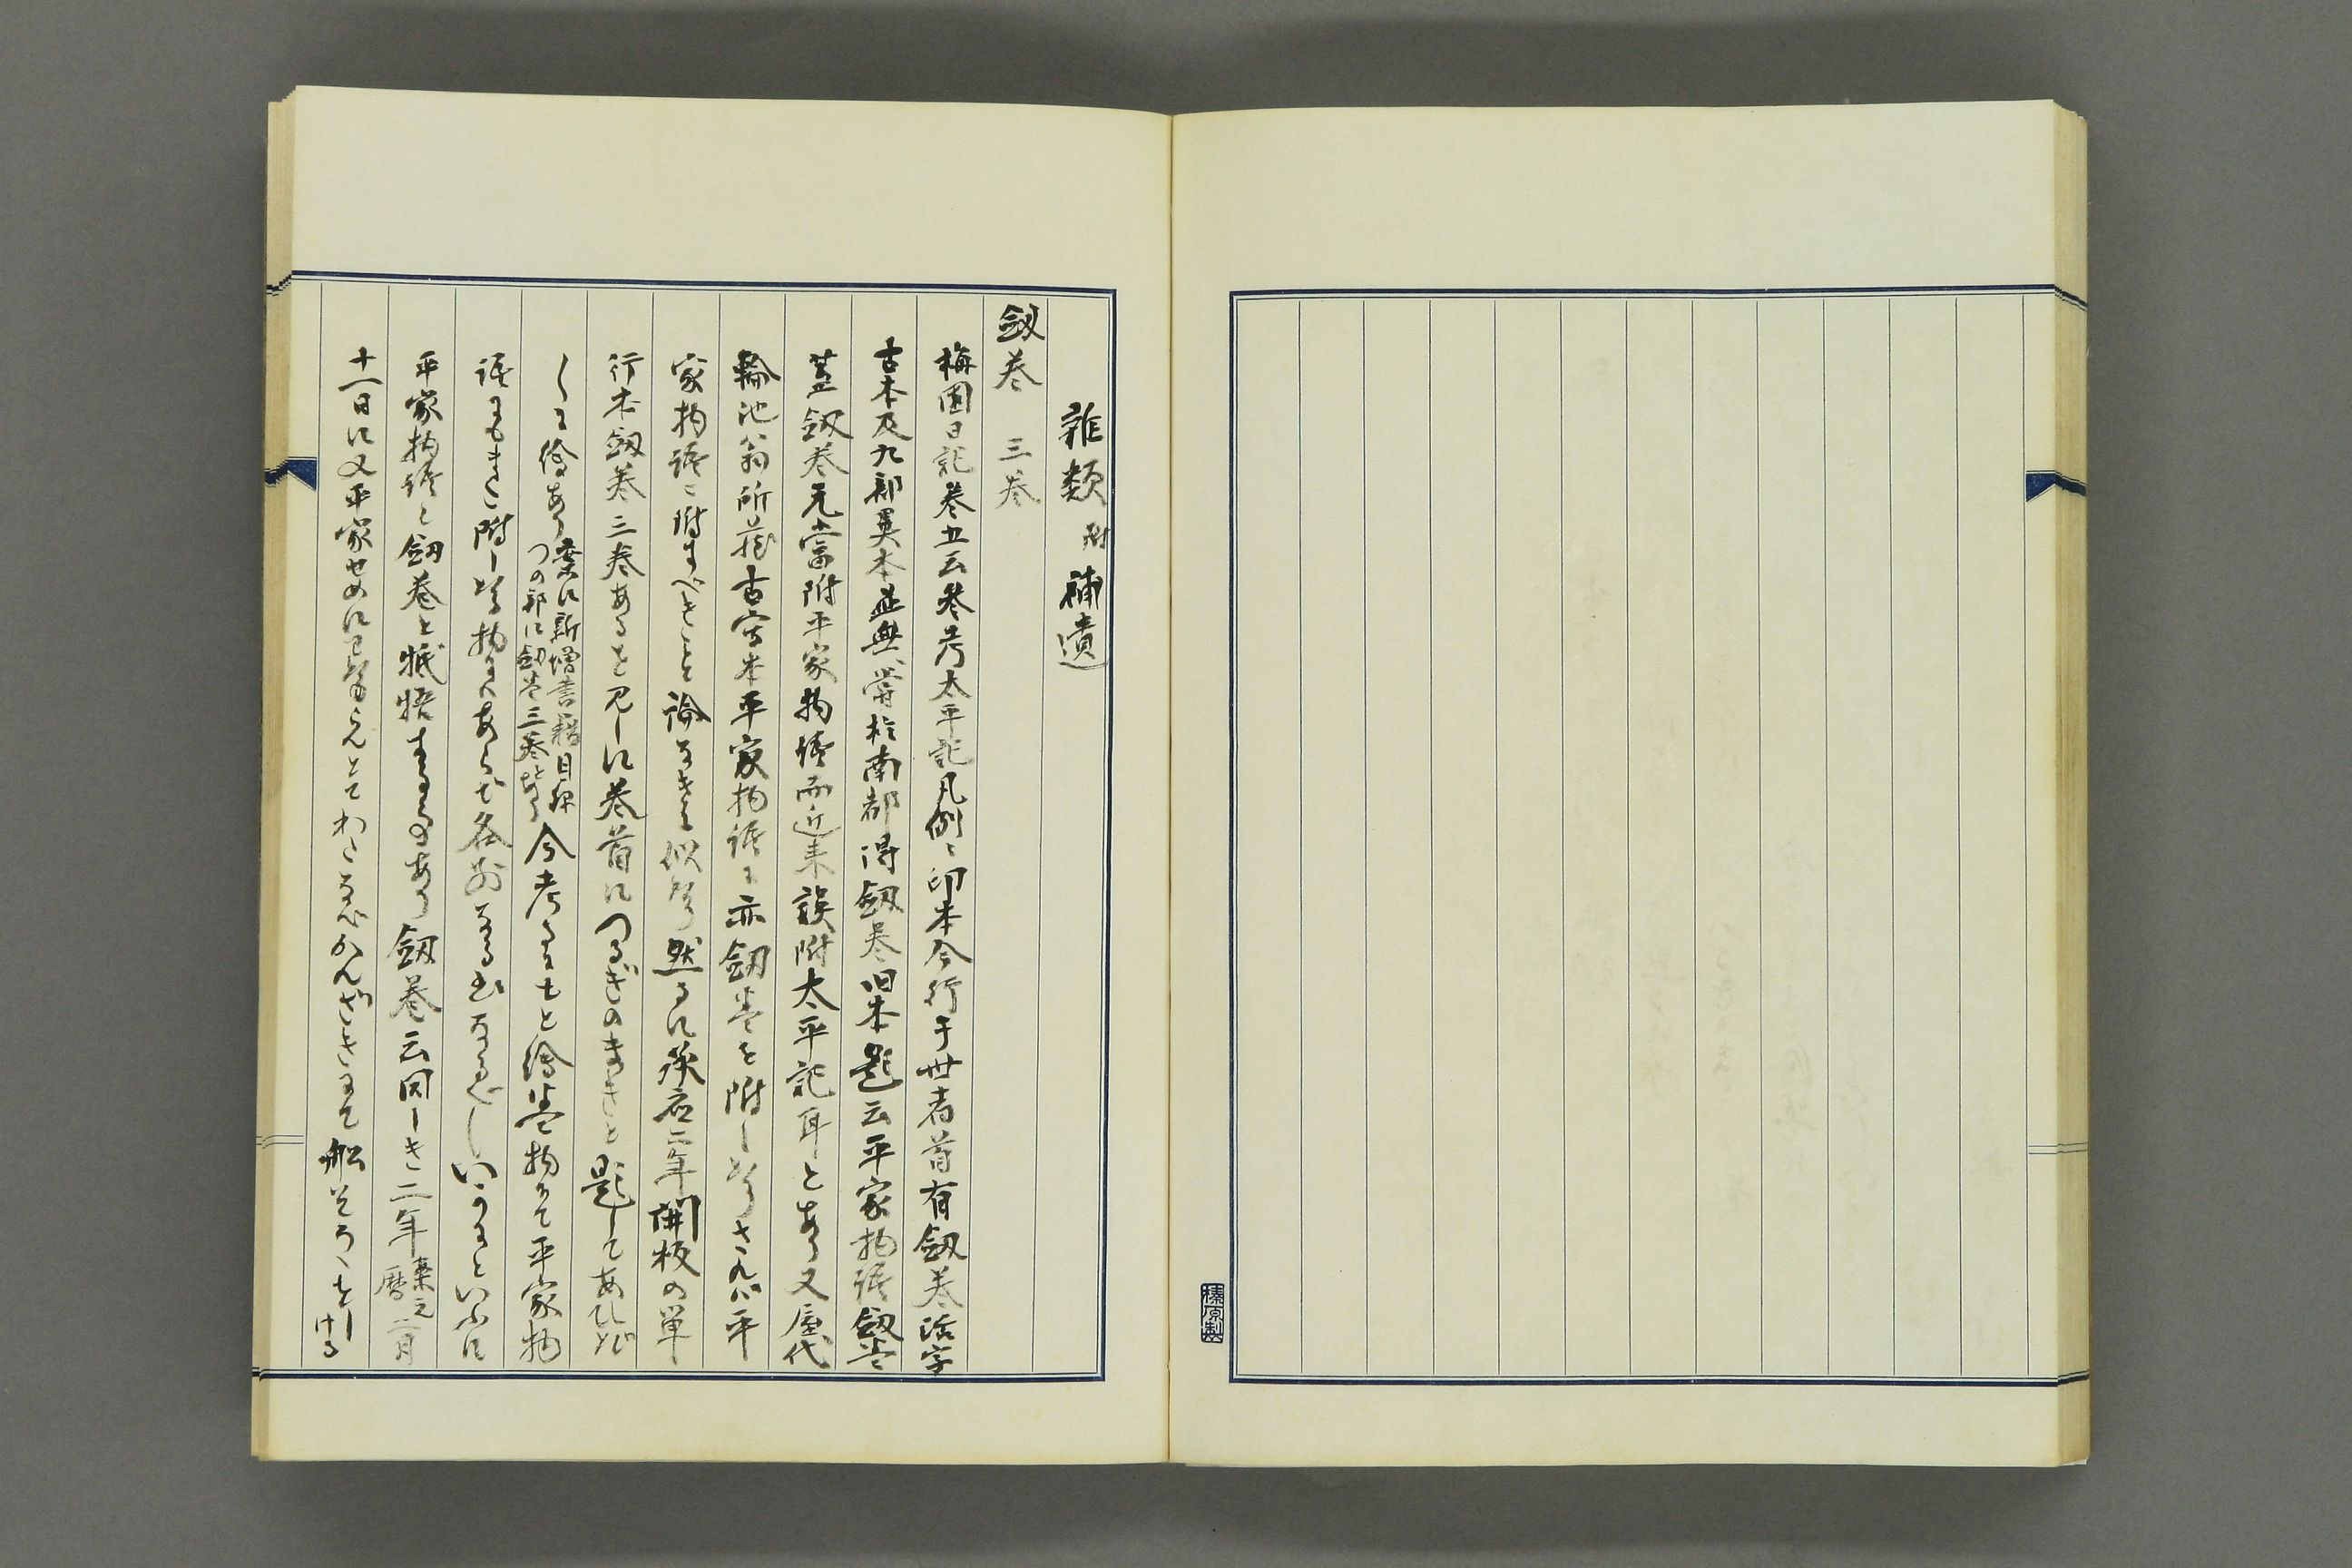 榛原製
雑類 附 補遺
劔巻 三巻
梅園日記巻五云参考太平記凡例ニ印本今行于世者首有劔巻活字
古本及九部異本並無嘗於南都得劔巻旧本題云平家物語劔巻
蓋劔巻元當附平家物語而近来誤附太平記耳とあり又屋代
輪池翁所蔵古写本平家物語に亦劔巻を附したりされバ平
家物語ニ附すべきこと論なきに似たり然るに承応二年開板の単
行本劔巻三巻あるを見しに巻首につるぎのまきと題してあひだ
〳〵に絵あり
案に新増書籍目録
つの部に劔巻三巻とあり
今考るにもと絵巻物にて平家物
語にもまた附したる物にハあらで各別なる書なるべしいかにといふに
平家物語と劔巻と牴牾することあり劔巻云同しき二年
案元
暦
二月
十一日に又平家せめにに向はんとてわたなべかんざきにて船そろへをしける